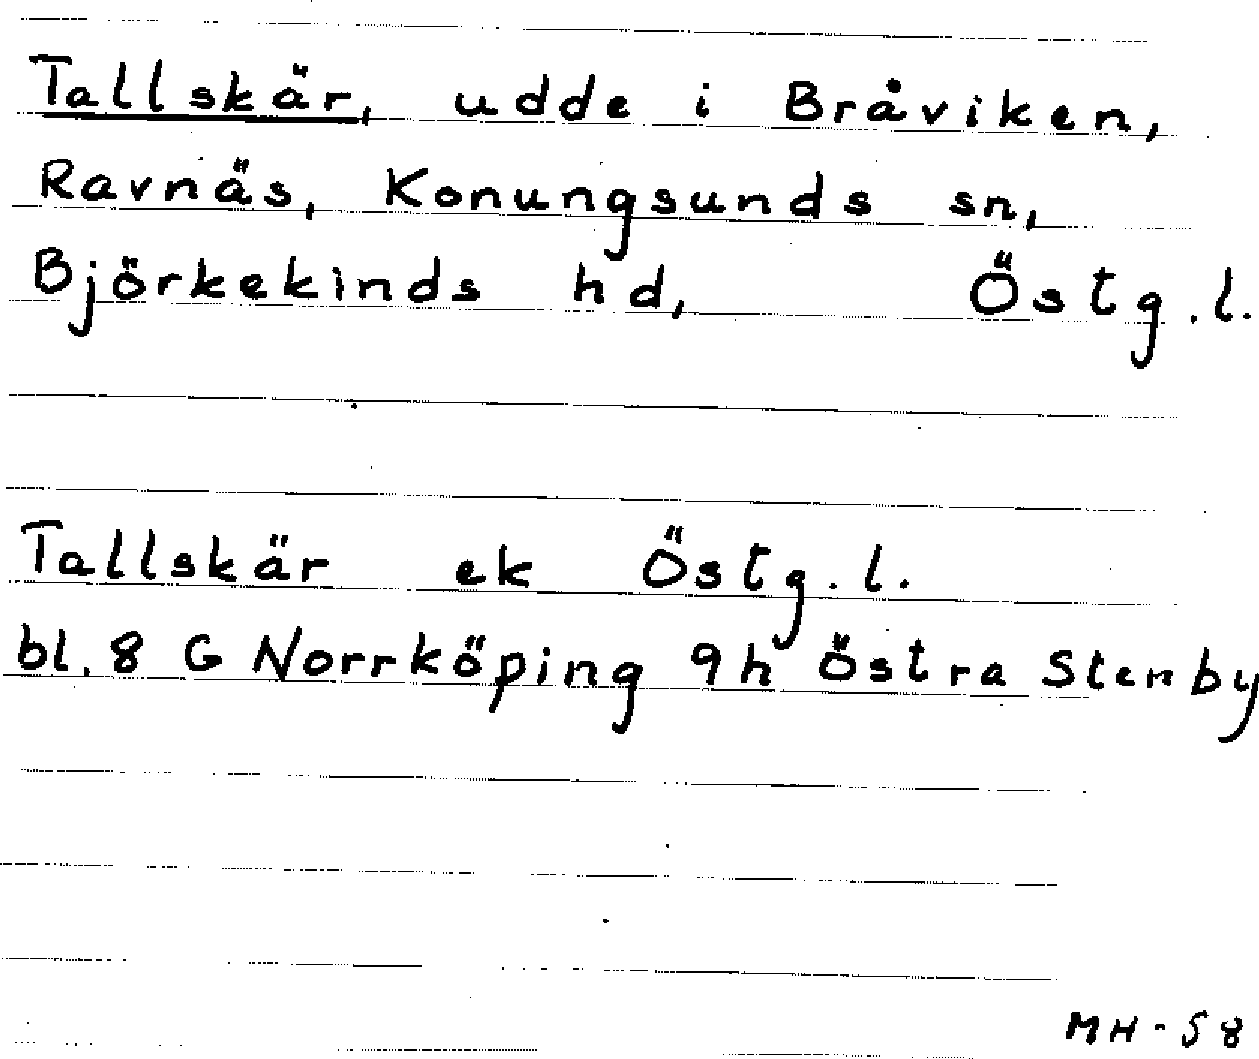 Tallskär, udde i Bråviken,
Ravnäs, Konungsunds sn,
Björkekinds hd, Östg.l.
Tallskär ek Östg.l.
bl. 8 G Norrköping 9h Östra Stenby
MH-58